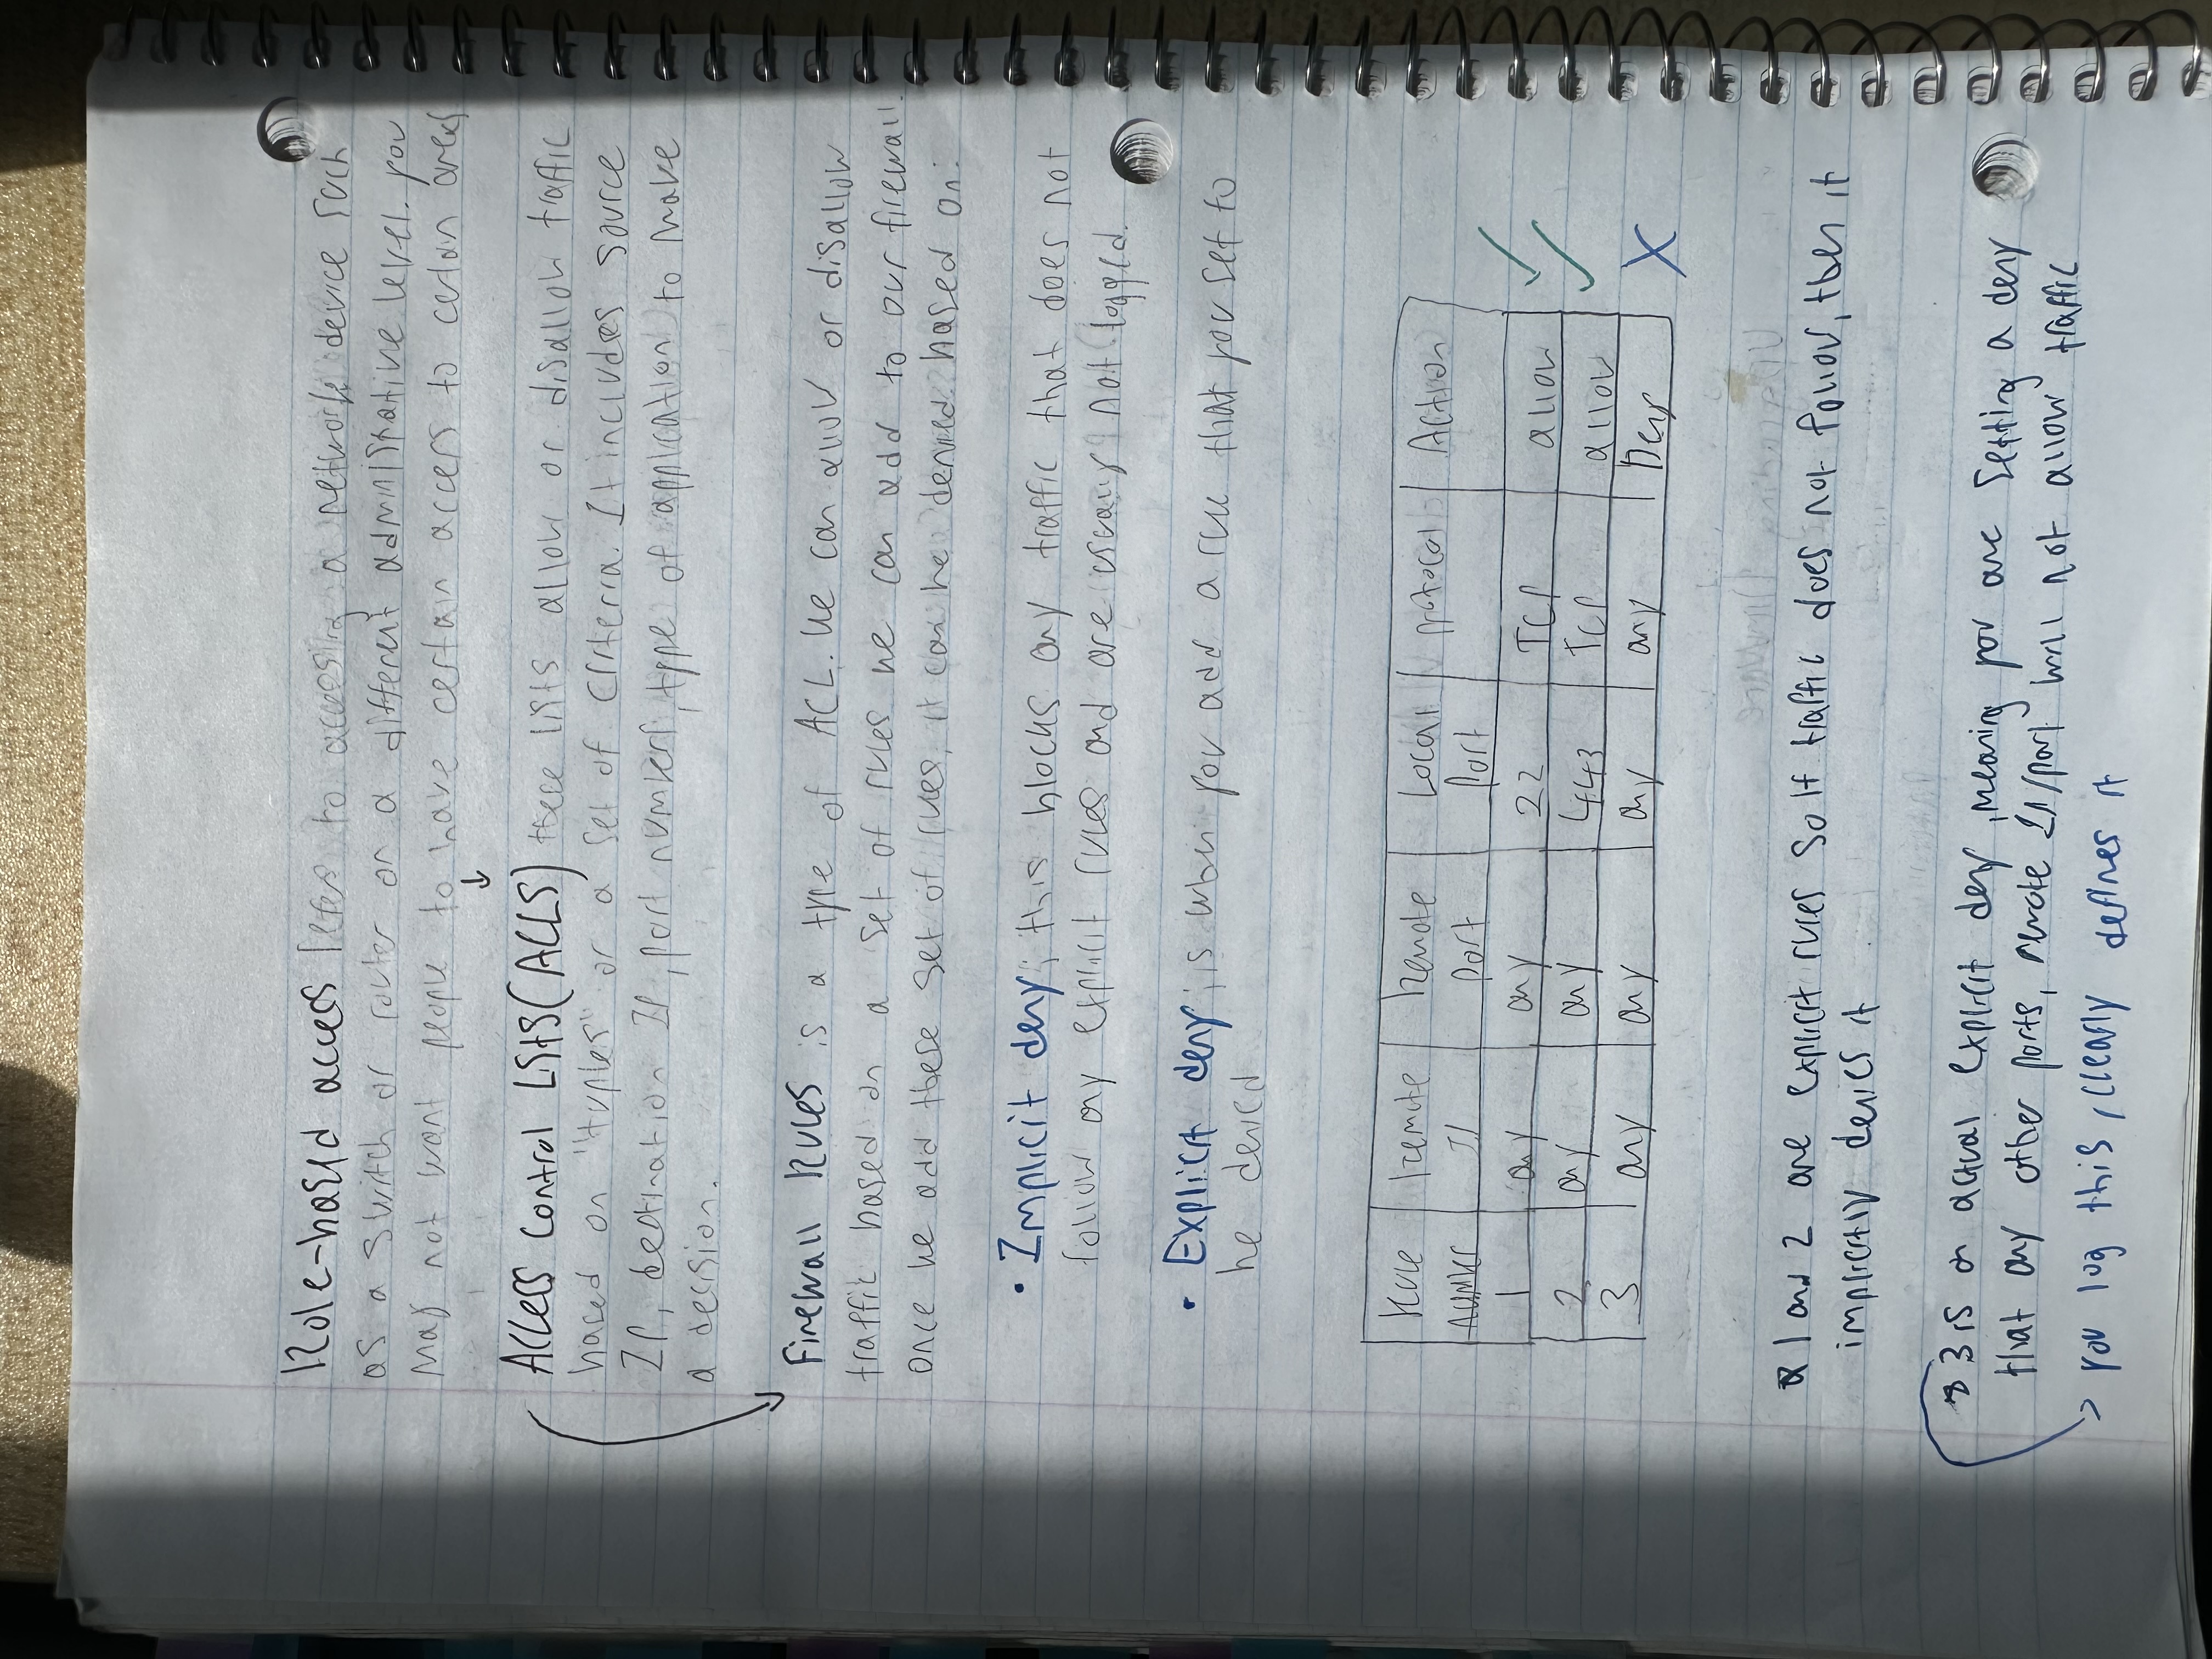 Role-based access refers to accessing a network device such
as a switch or router on a different administrative level. you
may not want people to have certain access to certain areas
↓
Access Control Lists (ACLS) these lists allow or disallow traffic
based on "tuples" or a set of criteria. It includes source
IP, destination IP, port numbers, type of application to make
a decision.
Firewall Rules is a type of ACL. We can allow or disallow
traffic based on a set of rules we can add to our firewall.
once we add these set of rules, it can be denied based on:
• Implicit deny; this blocks any traffic that does not
follow any explicit rules and are usually not logged.
• Explicit deny; is when you add a rule that you set to
be denied
Rule Number | Remote IP | Remote Port | Local Port | protocol | Action
1 | any | any | 22 | TCP | allow ✓
2 | any | any | 443 | TCP | allow ✓
3 | any | any | any | any | Deny X
* 1 and 2 are explicit rules so if traffic does not follow, then it
implicitly denies it
* 3 is an actual explicit deny, meaning you are setting a deny
that any other ports, remote IP/port will not allow traffic
> you log this, clearly defines it